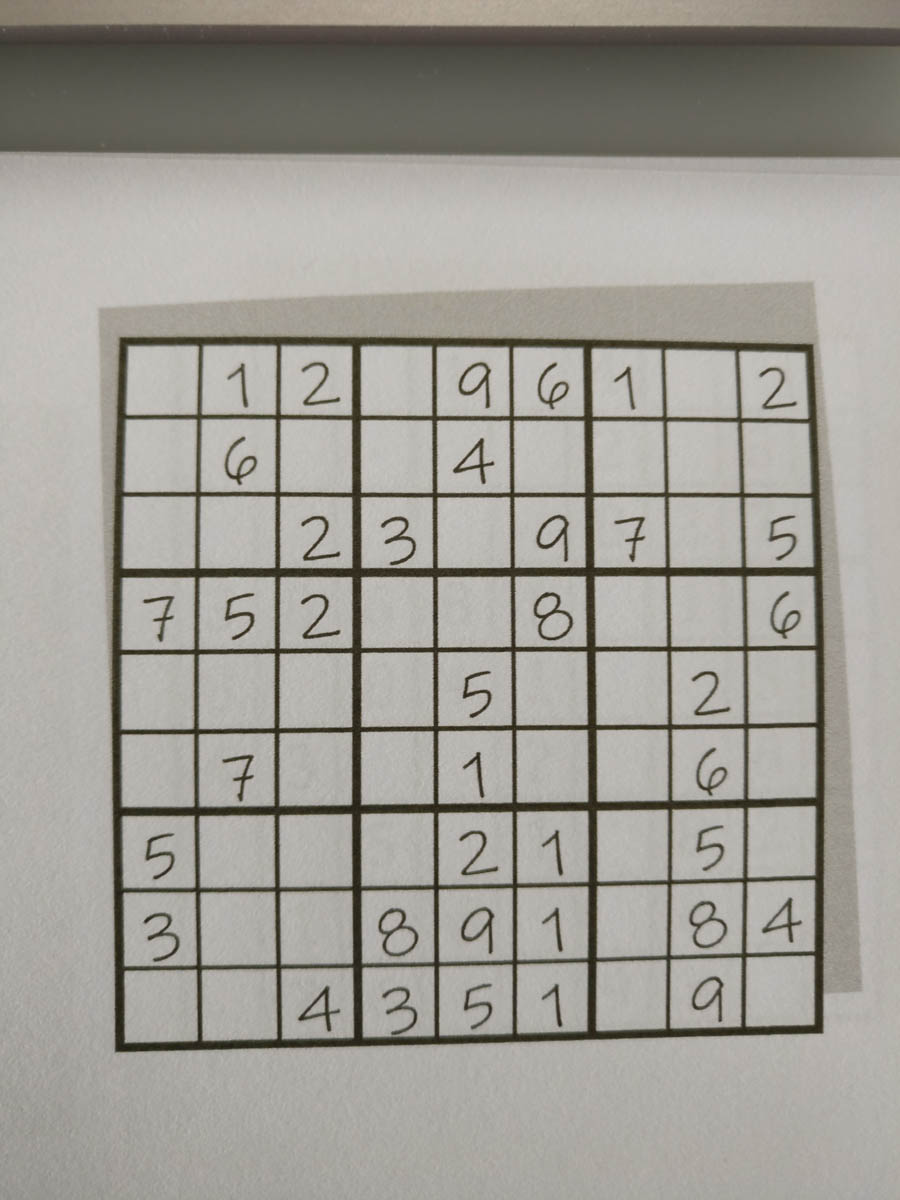 1 2 9 6 1 2
6 4
2 3 9 7 5
7 5 2 8 6
5 2
7 1 6
5 2 1 5
3 8 9 1 8 4
4 3 5 1 9